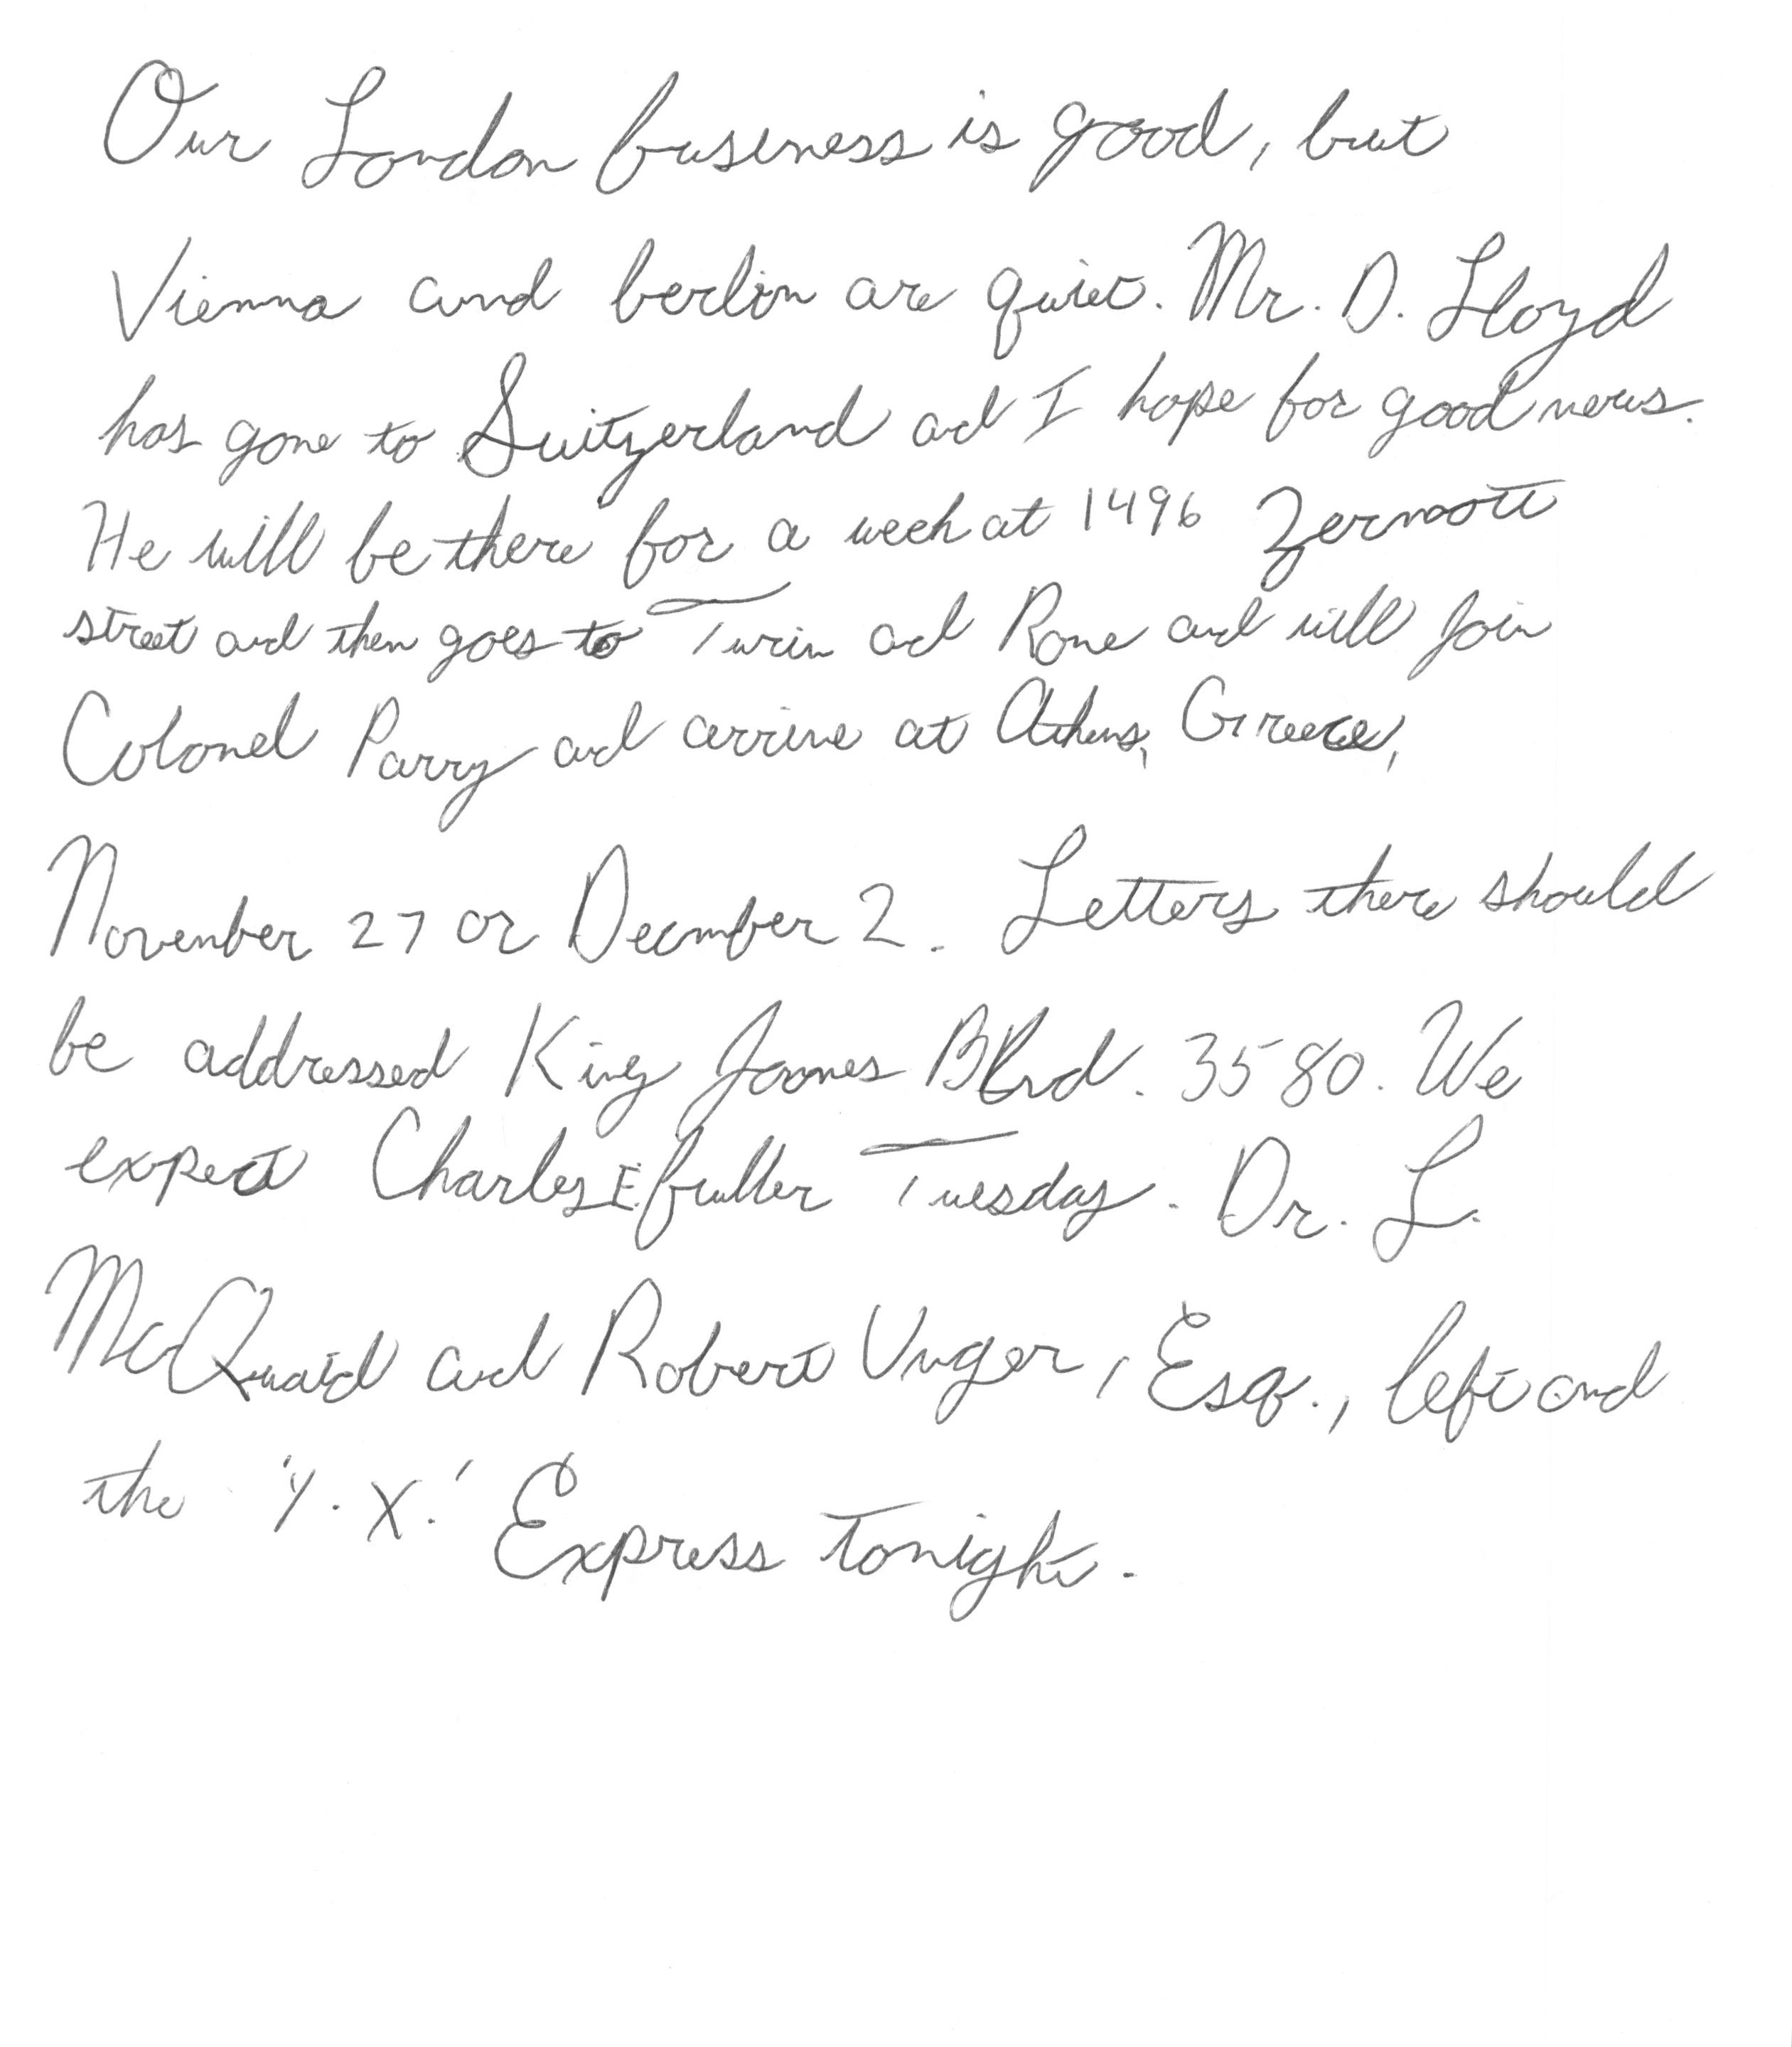 Our London business is good, but
Vienna and berlin are quiet. Mr. D. Lloyd
has gone to Switzerland and I hope for good news.
He will be there for a week at 1496 Zermott
street and then goes to Turin and Rome and will join
Colonel Parry and arrive at Athens, Greece,
November 27 or December 2. Letters there should
be addressed King James Blvd. 3580. We
expect Charles E. fuller Tuesday. Dr. L.
McQuaid and Robert Unger, Esq., left and
the 'Y. X.' Express tonight.